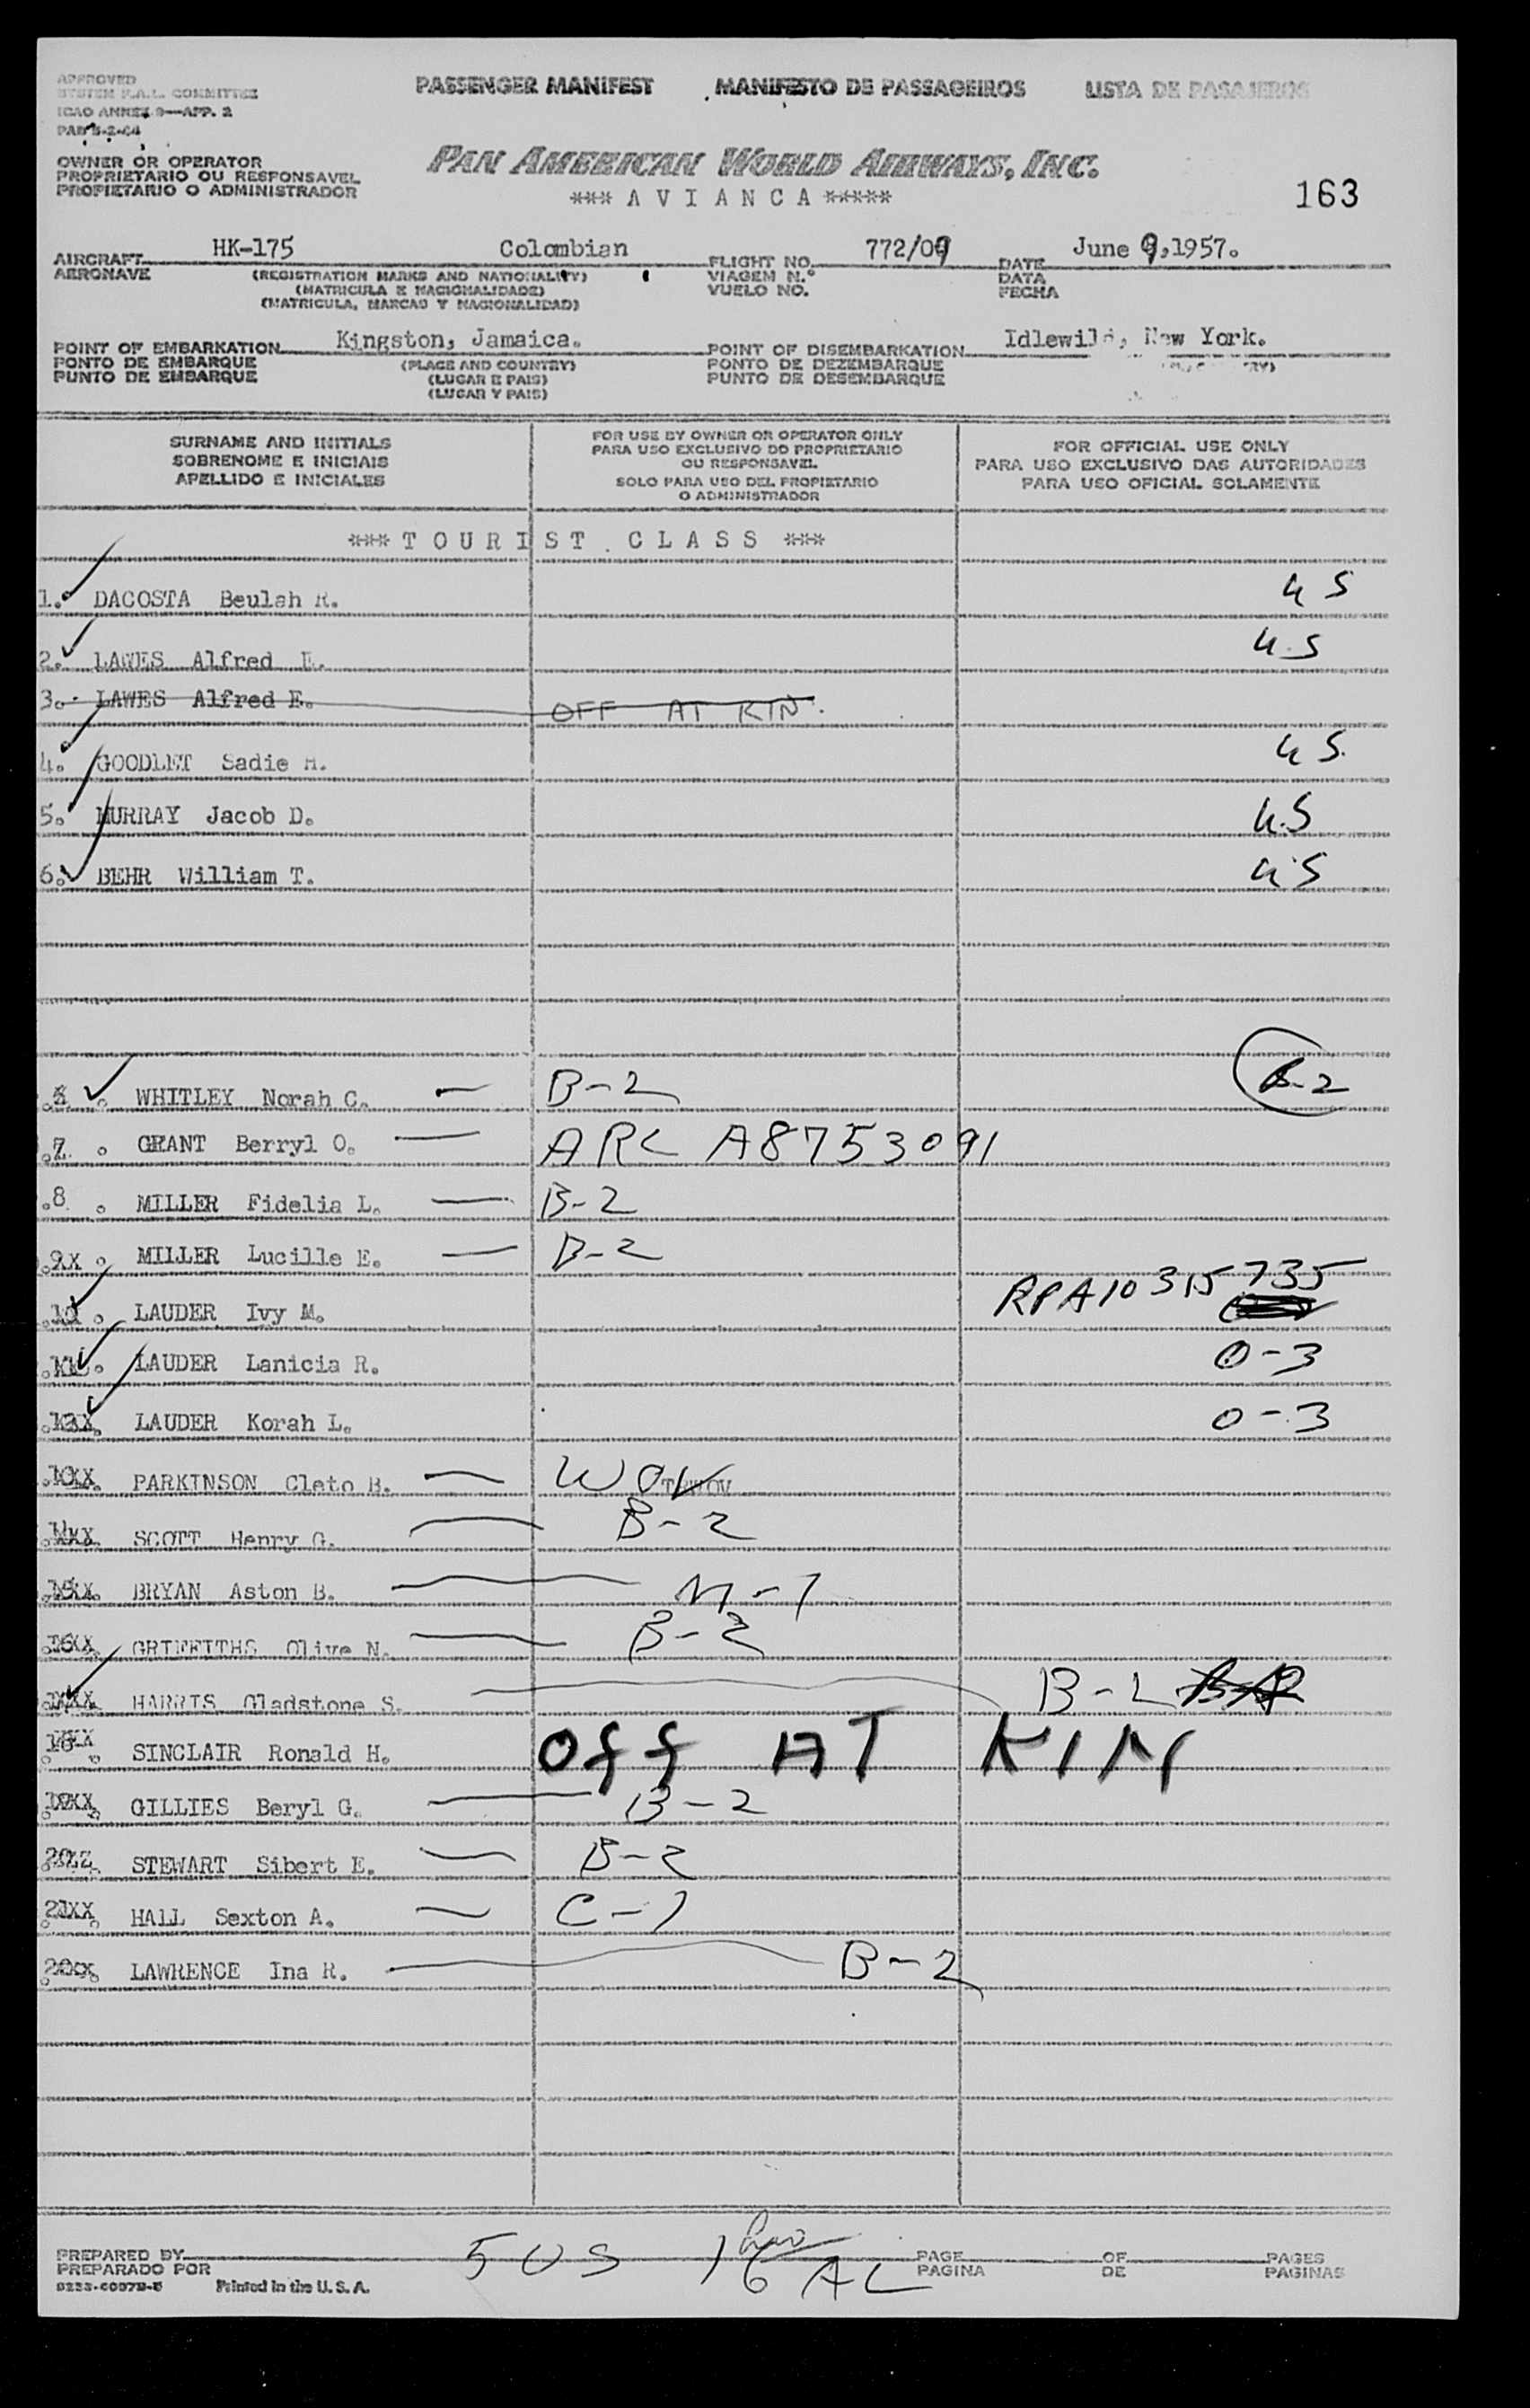 APPROVED
SYSTEM F.A.L. COMMITTEE
ICAO ANNEX 9—APP. 2
PAN 5-2-44
PASSENGER MANIFEST MANIFESTO DE PASSAGEIROS LISTA DE PASAJEROS
OWNER OR OPERATOR
PROPRIETARIO OU RESPONSAVEL
PROPIETARIO O ADMINISTRADOR
PAN AMERICAN WORLD AIRWAYS, INC.
*** A V I A N C A *****
163
AIRCRAFT HK-175 Colombian FLIGHT NO. 772/09 DATE June 9,1957.
AERONAVE (REGISTRATION MARKS AND NATIONALITY) VIAGEM N.º DATA
(MATRICULA E NACIONALIDADE) VUELO NO. FECHA
(MATRICULA, MARCAS Y NACIONALIDAD)
POINT OF EMBARKATION Kingston, Jamaica. POINT OF DISEMBARKATION Idlewild, New York.
PONTO DE EMBARQUE (PLACE AND COUNTRY) PONTO DE DEZEMBARQUE
PUNTO DE EMBARQUE (LUGAR E PAIS) PUNTO DE DESEMBARQUE
(LUGAR Y PAIS)
SURNAME AND INITIALS
SOBRENOME E INICIAIS
APELLIDO E INICIALES
FOR USE BY OWNER OR OPERATOR ONLY
PARA USO EXCLUSIVO DO PROPRIETARIO
OU RESPONSAVEL
SOLO PARA USO DEL PROPIETARIO
O ADMINISTRADOR
FOR OFFICIAL USE ONLY
PARA USO EXCLUSIVO DAS AUTORIDADES
PARA USO OFICIAL SOLAMENTE
*** T O U R I S T . C L A S S ***
1. DACOSTA Beulah R. U S
2. LAWES Alfred E. U.S
3. LAWES Alfred E. OFF AT KIN.
4. GOODLET Sadie H. U S.
5. MURRAY Jacob D. U.S
6. BEHR William T. U.S
WHITLEY Norah C. B-2 B-2
7. GRANT Berryl O. ARC A8753091
8. MILLER Fidelia L. B-2
9. MILLER Lucille E. B-2
10. LAUDER Ivy M. RPA10315735
11. LAUDER Lanicia R. O-3
12. LAUDER Korah L. O-3
PARKINSON Cleto B. WOV TRWOV
SCOTT Henry G. B-2
15 BRYAN Aston B.
16 GRIFFITHS Olive N. B-2
HARRIS Gladstone S. B-2
18 SINCLAIR Ronald H. Off AT KIN
19 GILLIES Beryl G. B-2
20 STEWART Sibert E. B-2
21 HALL Sexton A. C-1
LAWRENCE Ina R. B-2
PREPARED BY 5 US 16 AL PAGE OF PAGES
PREPARADO POR PAGINA DE PAGINAS
Printed in the U. S. A.